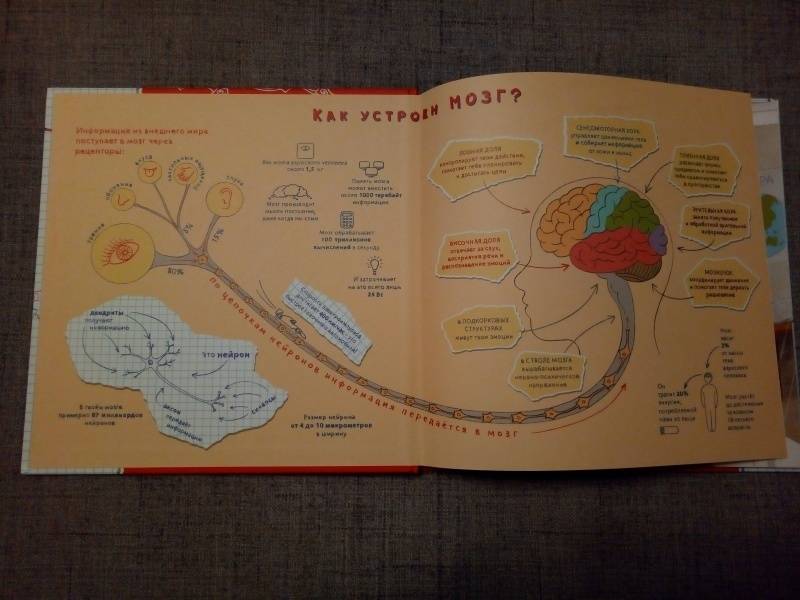 КАК УСТРОЕН МОЗГ?
Информация из внешнего мира
поступает в мозг через
рецепторы:
обоняние
вкус
слух
зрение
80%
5%
15%
Вес мозга взрослого человека
около 1,5 кг
Память мозга
может вместить
около 1000 терабайт
информации
Мозг производит
мысли постоянно,
даже когда мы спим
Мозг обрабатывает
100 триллионов
вычислений в секунду
И затрачивает
на это всего лишь
24 Вт
по цепочкам нейронов информация передаётся в мозг
дендриты
получают
информацию
это нейрон
аксон
передаёт
информацию
синапсы
В твоём мозге
примерно 87 миллиардов
нейронов
Размер нейрона
от 4 до 10 микрометров
в ширину
ЛОБНАЯ ДОЛЯ
контролирует твои действия,
помогает тебе планировать
и достигать цели
СЕНСОМОТОРНАЯ КОРА
управляет движениями тела
и собирает информацию
от кожи и мышц
ТЕМЕННАЯ ДОЛЯ
ЗРИТЕЛЬНАЯ КОРА
и обработкой зрительной
информации
ВИСОЧНАЯ ДОЛЯ
отвечает за слух,
восприятие речи и
распознавание эмоций
МОЗЖЕЧОК
координирует движения
и помогает тебе держать
равновесие
в ПОДКОРКОВЫХ
СТРУКТУРАХ
живут твои эмоции
в СТВОЛЕ МОЗГА
вырабатывается
нервно-психическое
напряжение
Мозг
весит
2%
от массы
тела
взрослого
человека
Он
тратит 20%
энергии,
потребляемой